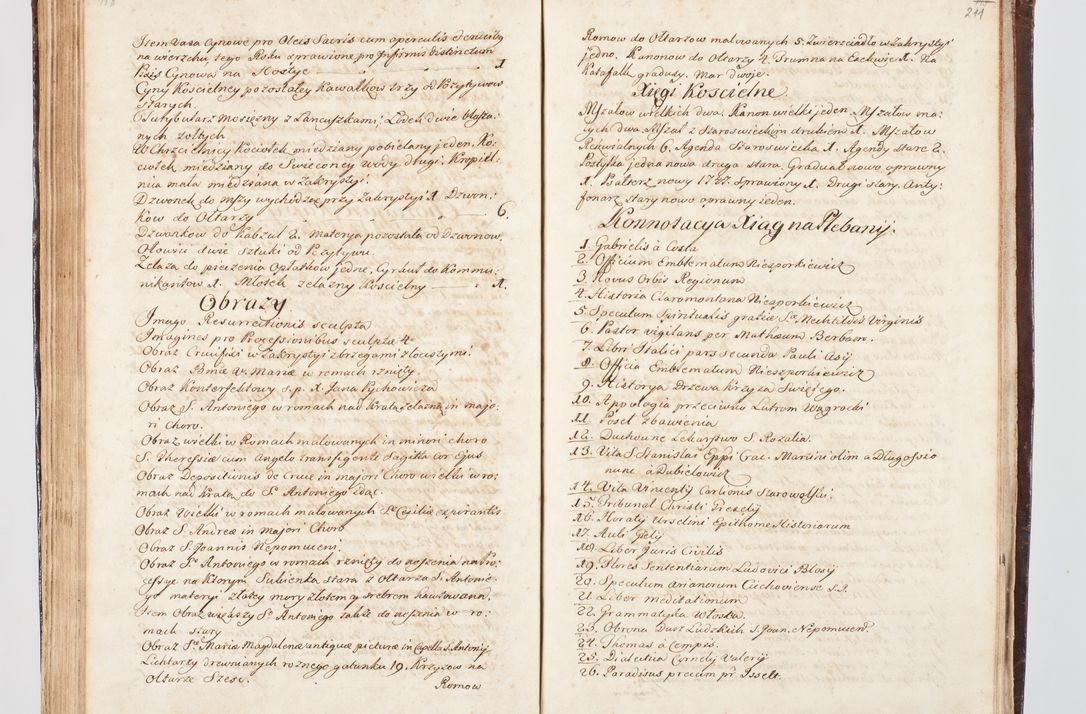 Item Vasa Cynowe pro Oleis Sacris cum operculis et crucibus
na wierzchu, tego Roku sprawione, pro Infirmis distinctum
Pixis Cynowa na Hostye 1
Cyny Koscielney pozostałey Kawałkow trzy od Pozytywow
starych.
Turybularz Mosięzny z Lancuszkami, Lodek dwie blaszanych
nych zołtych
W Chrzcielnicy Kociołek miedziany pobielany jeden, Ko:
ciołek miedziany do Swięconey wody drugi, Kropiel:
nica mała miedziana w Zakrystyi.
Dzwonek do Mszy wychodzące przy Zakrystyi 1 Dzwon:
kow do Ołtarzy 6.
Dzwonkow do Kabzul 2. Materya pozostała od Dzwonow,
Ołowiu dwie Sztuki od Pozytywu.
Zelaza do pieczenia Opłatkow jedne, Cyrkuł do Kommu:
nikantow 1. Młotek zelazny Koscielny 1.
Obrazy
Imago Resurrectionis sculpta
Imagines pro Processionibus sculptæ 4
Obraz Crucifixi w Zakrystyi z brzegami złocistymi
Obraz Bmæ V. Mariæ w romach rznięty
Obraz Konterfektowy s.p. X. Jana Pychowicza
Obraz S. Antoniego w romach nad Kratą Zelazną in majo:
ri Choro.
Obraz wielki w Romach malowanych in minori choro
S. Theresiæ cum Angelo transfigente Sagitta cor Ejus
Obraz Depositionis de Cruce in majori Choro wielki w ro:
mach nad Kratą do S. Antoniego idąc.
Obraz Wielki w romach malowanych S. Cæciliæ expirantis
Obraz S. Andreæ in Majori Choro
Obraz S. Joannis Nepomuceni.
Obraz S. Antoniego w romach rznięty do noszenia na Pro:
cessye na ktorym Sukienka stara z Ołtarza S. Antonie:
go materyi złotey mory złotem y srebrem hawtowana.
Item Obraz większy S. Antoniego także do noszenia w ro:
mach stary
Obraz S. Mariæ Magdalenæ antiquæ picturæ in Capella S. Antonij
Lichtarzy drewnianych roznego gatunku 19. Krzyzow na
Ołtarze Szesc.
Romow
211
Romow do Ołtarzow malowanych 5. Zwierzciadło w Zakrystyi
jedno. Kanonow do Ołtarzy 4. Trumna na Exekwie 1. Na
Katafalk gradusy. Mar dwoje.
Xięgi Koscielne
Mszałow wielkich dwa. Kanon wielki jeden. Mszałow ma:
łych dwa. Mszał z Staroswieckim drukiem 1. Mszałow
Rekwialnych 6. Agenda Staroswiecka 1. Agendy stare 2.
Postylka jedna nowa druga stara. Graduał nowo oprawny
1. Psalterz nowy 1747. Sprawiony 1. Drugi stary. Anty:
fonarz stary nowo oprawny jeden.
Konnotacya Xiąg na Plebanij.
1. Gabrielis á Costa
2. Officium Emblematum Nieszporkiewicz
3. Novus Orbis Regionum
4. Historia Claromontana Nieszporkiewicz
5. Speculum Spiritualis gratiæ Stæ Mechtildis Virginis
6. Pastor vigilans per Mathæum Berbam.
7. Libri Italici pars secunda Pauli
8. Officia Emblematum Nieszporkiewicz
9. Historya Drzewa Krzyza Swiętego.
10. Appologia przeciwko Lutrom Wągrocki
11. Poseł zbawienia
12. Duchowne Lekarstwo S. Rozalia.
13. Vita S. Stanislai Eppi Crac. Martini olim a Dlugosszo
nunc a Dubielowicz
14. Vita Vincentij Carlionis Starowolski.
15. Tribunal Christi Prezely
16. Horaty Urselini Epithome Historiarum
17. Auli Gelij
18. Liber Juris Civilis
19. Flores Sententiarum Ludovici Blosij
20. Speculum Arianorum Cichoviense S.J.
21. Liber meditationum
22. Grammatyka Włoska.
23. Obrona Dusz Ludzkich S. Joan. Nepomucen.
24. Thomas a Cempis.
25. Dialectica Cornely Valerij
26. Paradisus precum pr. Isselt.